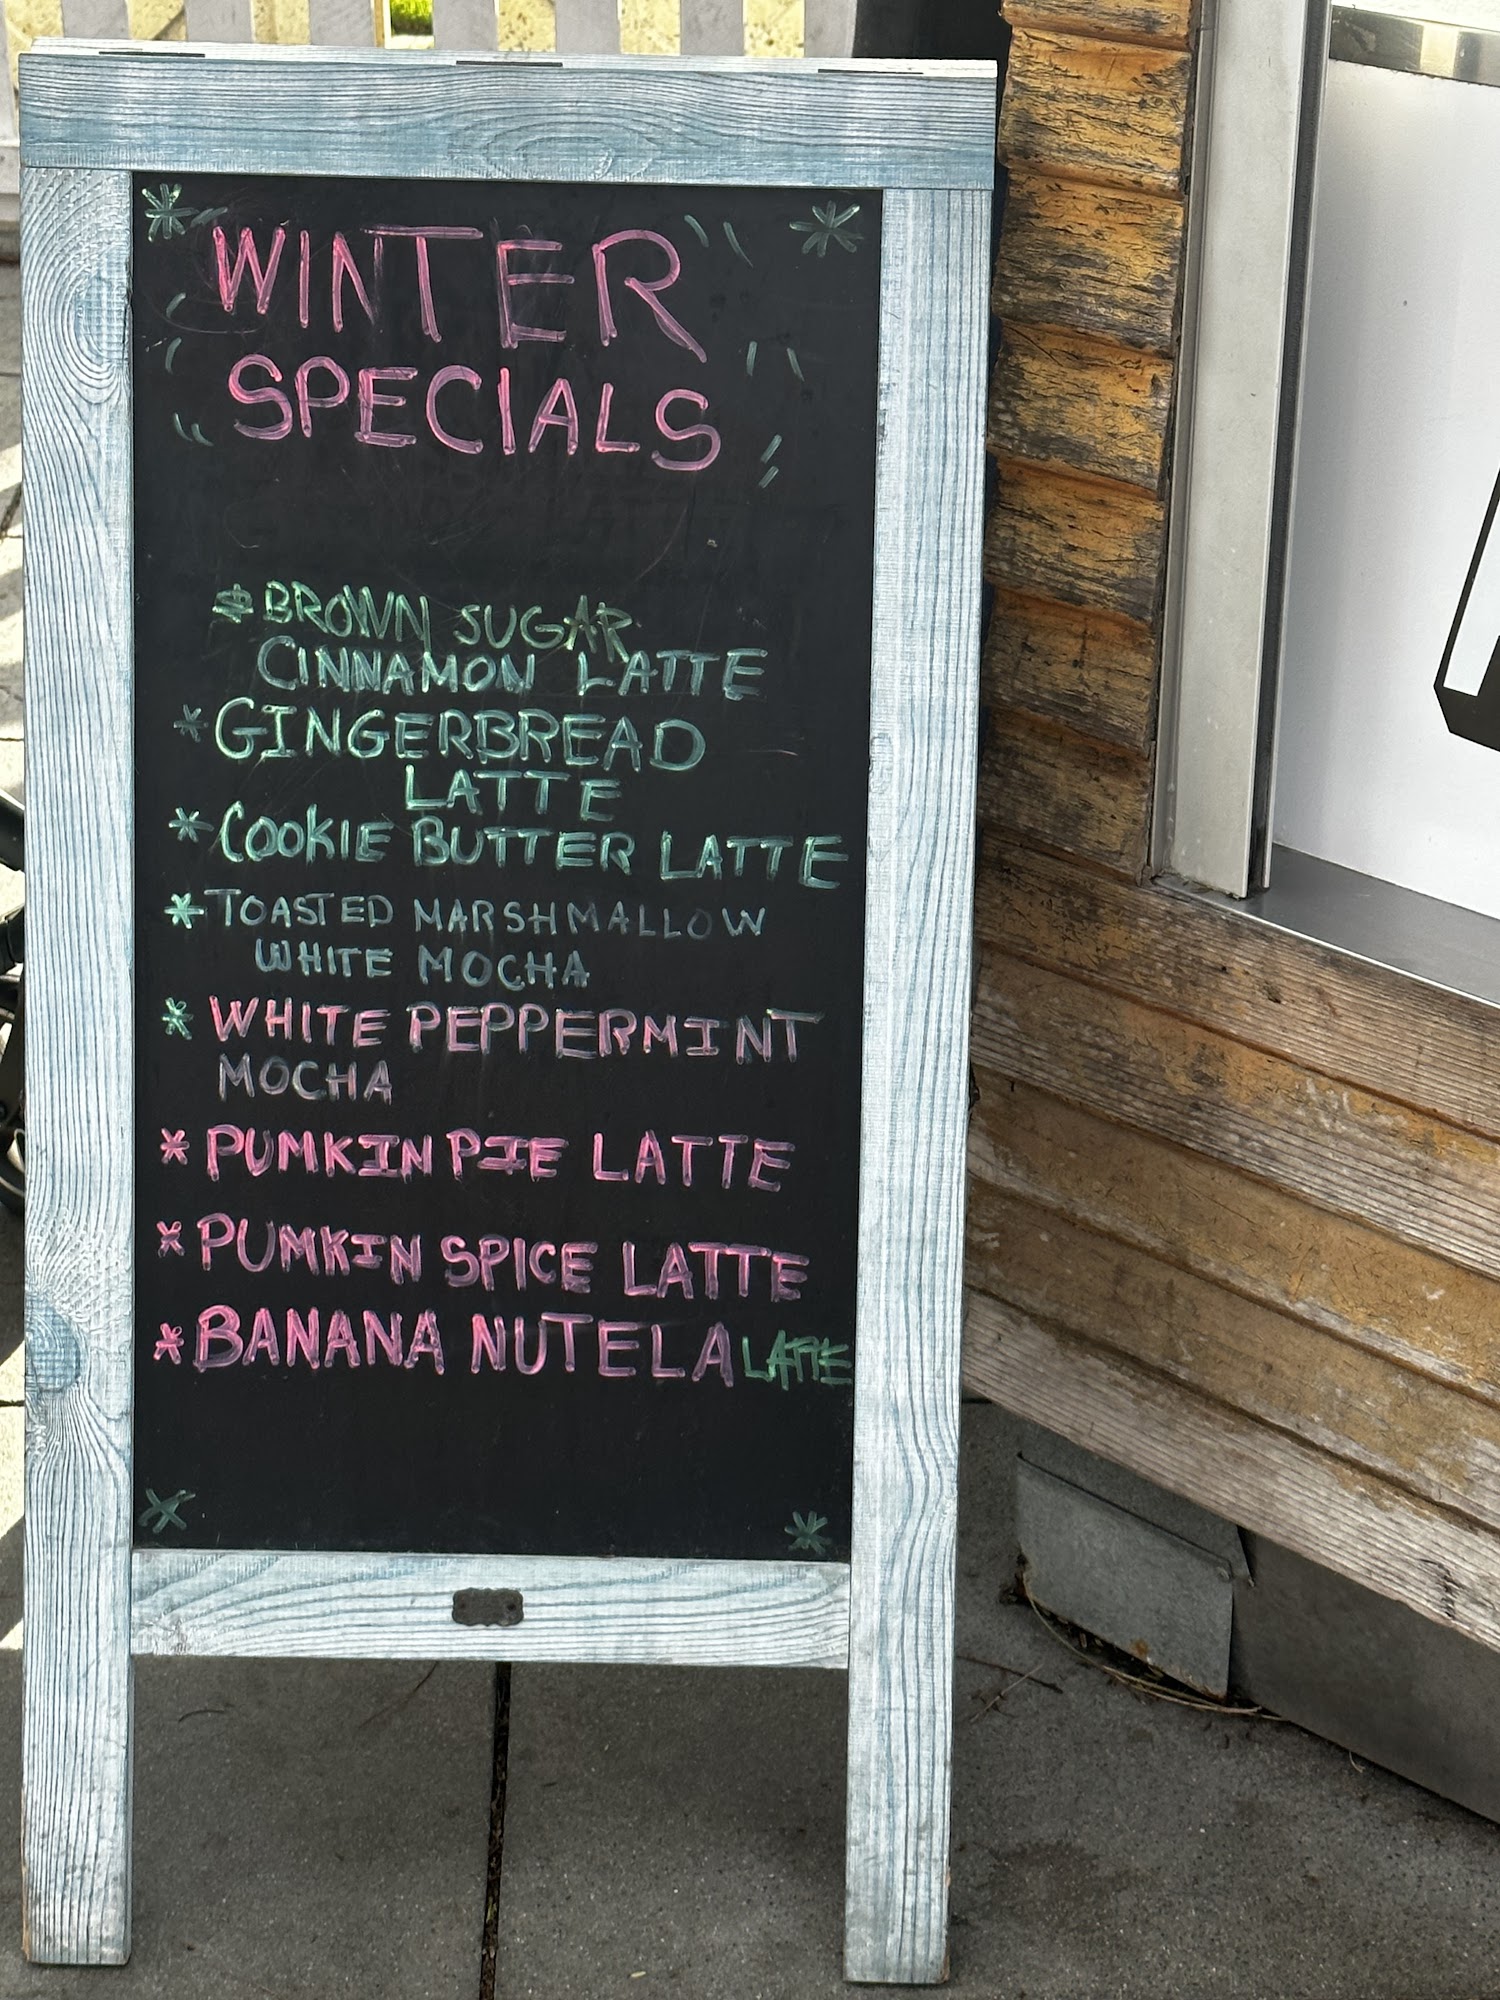 WINTER
SPECIALS
* BROWN SUGAR
CINNAMON LATTE
* GINGERBREAD
LATTE
* COOKIE BUTTER LATTE
* TOASTED MARSHMALLOW
WHITE MOCHA
* WHITE PEPPERMINT
MOCHA
* PUMKIN PIE LATTE
* PUMKIN SPICE LATTE
* BANANA NUTELA LATTE